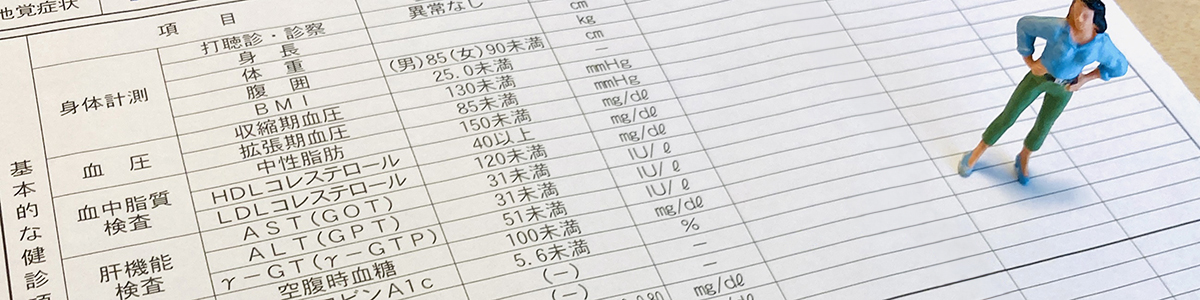 他覚症状
項 目
打聴診・診察
身 長
体 重
腹 囲
BMI
収縮期血圧
拡張期血圧
中性脂肪
HDLコレステロール
LDLコレステロール
AST(GOT)
ALT(GPT)
γ-GT(γ-GTP)
空腹時血糖
ビンA1c
基本的な健診項
身体計測
血 圧
血中脂質
検査
肝機能
検査
異常なし
(男)85(女)90未満
25.0未満
130未満
85未満
150未満
40以上
120未満
31未満
31未満
51未満
100未満
5.6未満
(-)
(-)
cm
kg
cm
-
mmHg
mmHg
mg/dℓ
mg/dℓ
IU/ℓ
IU/ℓ
IU/ℓ
mg/dℓ
%
-
-
mg/dℓ